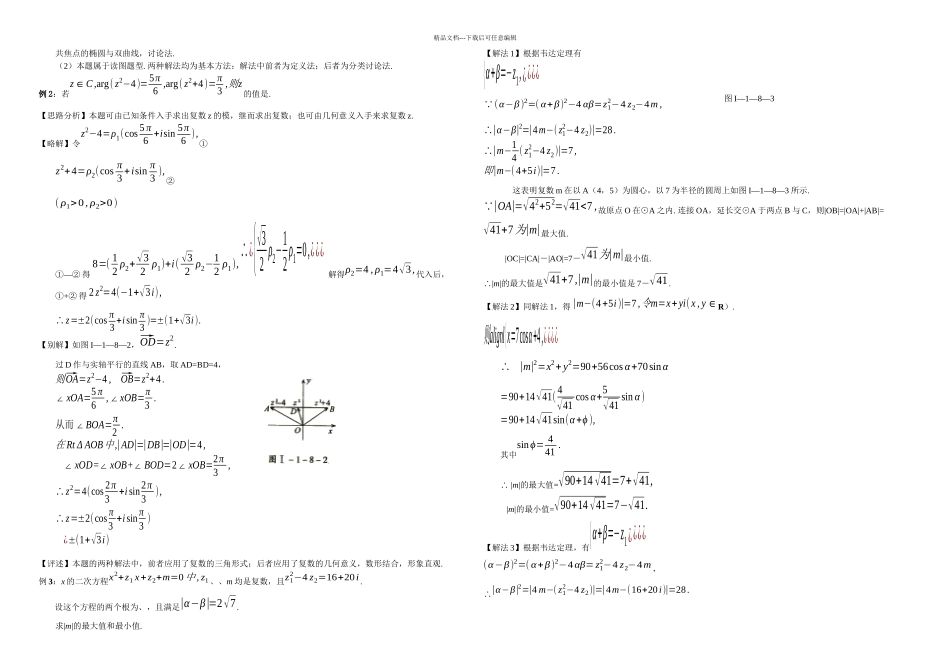 精品文档---下载后可任意编辑
共焦点的椭圆与双曲线，讨论法.
（2）本题属于读图题型. 两种解法均为基本方法：解法中前者为定义法；后者为分类讨论法.
例 2：若 z∈C ,arg(z²−4)=5π/6 ,arg(z²+4)=π/3 ,则z 的值是.
【思路分析】本题可由已知条件入手求出复数 z 的模，继而求出复数；也可由几何意义入手来求复数 z.
【略解】令 z²−4=ρ₁(cos 5π/6 +isin 5π/6), ①
z²+4=ρ₂(cos π/3 +isin π/3), ②
(ρ₁>0 ,ρ₂>0)
①—②得 8=(1/2 ρ₂+√3/2 ρ₁)+i(√3/2 ρ₂−1/2 ρ₁), ∴¿{√3/2 ρ₂−1/2 ρ₁=0,¿¿¿ 解得 ρ₂=4 ,ρ₁=4√3, 代入后，
①+②得 2z²=4(−1+√3i),
∴z=±2(cos π/3 +isin π/3)=±(1+√3i).
【别解】如图 I—1—8—2，OD=z².
过 D 作与实轴平行的直线 AB，取 AD=BD=4，
则OA=z²−4， OB=z²+4.
∠xOA=5π/6 ,∠xOB=π/3 .
从而∠BOA=π/2 .
在RtΔAOB中,|AD|=|DB|=|OD|=4，
∠xOD=∠xOB+∠BOD=2∠xOB=2π/3 ,
∴z²=4(cos 2π/3 +isin 2π/3),
∴z=±2(cos π/3 +isin π/3)
¿±(1+√3i)
y
z²-4 z² z²+4
A D B
O x
图 I－1－8－2
【评述】本题的两种解法中，前者应用了复数的三角形式；后者应用了复数的几何意义，数形结合，形象直观.
例 3：x 的二次方程 x²+z₁x+z₂+m=0中,z₁ ，、m 均是复数，且 z₁²−4z₂=16+20i .
设这个方程的两个根为、，且满足 |α−β|=2√7 .
求|m|的最大值和最小值.
【解法 1】根据韦达定理有
{α+β=−z₁,¿¿¿¿
∵(α−β)²=(α+β)²−4αβ=z₁²−4z₂−4m ,
图 I—1—8—3
∴|α−β|²=|4m−(z₁²−4z₂)|=28 .
∴|m−1/4(z₁²−4z₂)|=7 ,
即|m−(4+5i)|=7 .
这表明复数 m 在以 A（4，5）为圆心，以 7 为半径的圆周上如图 I—1—8—3 所示.
∵|OA|=√4²+5²=√41<7 , 故原点 O 在⊙A 之内. 连接 OA，延长交⊙A 于两点 B 与 C，则|OB|=|OA|+|AB|=
√41+7为|m| 最大值.
|OC|=|CA|－|AO|=7－√41为|m| 最小值.
∴|m|的最大值是 √41+7 ,|m| 的最小值是 7－√41 .
【解法 2】同解法 1，得 |m−(4+5i)|=7 ,令m=x+yi(x ,y∈R）.
则{alignl¿x=7cosα+4,¿¿¿¿
∴ |m|²=x²+y²=90+56cosα+70sinα
=90+14√41(4/√41 cosα+5/√41 sinα)
=90+14√41sin(α+ϕ),
其中 sinϕ=4/41 .
∴ |m|的最大值=√90+14√41=7+√41,
|m|的最小值=√90+14√41=7−√41.
【解法 3】根据韦达定理，有 {α+β=−z₁¿¿¿¿
(α−β)²=(α+β)²−4αβ=z₁²−4z₂−4m ,
∴|α−β|²=|4m−(z₁²−4z₂)|=|4m−(16+20i)|=28.